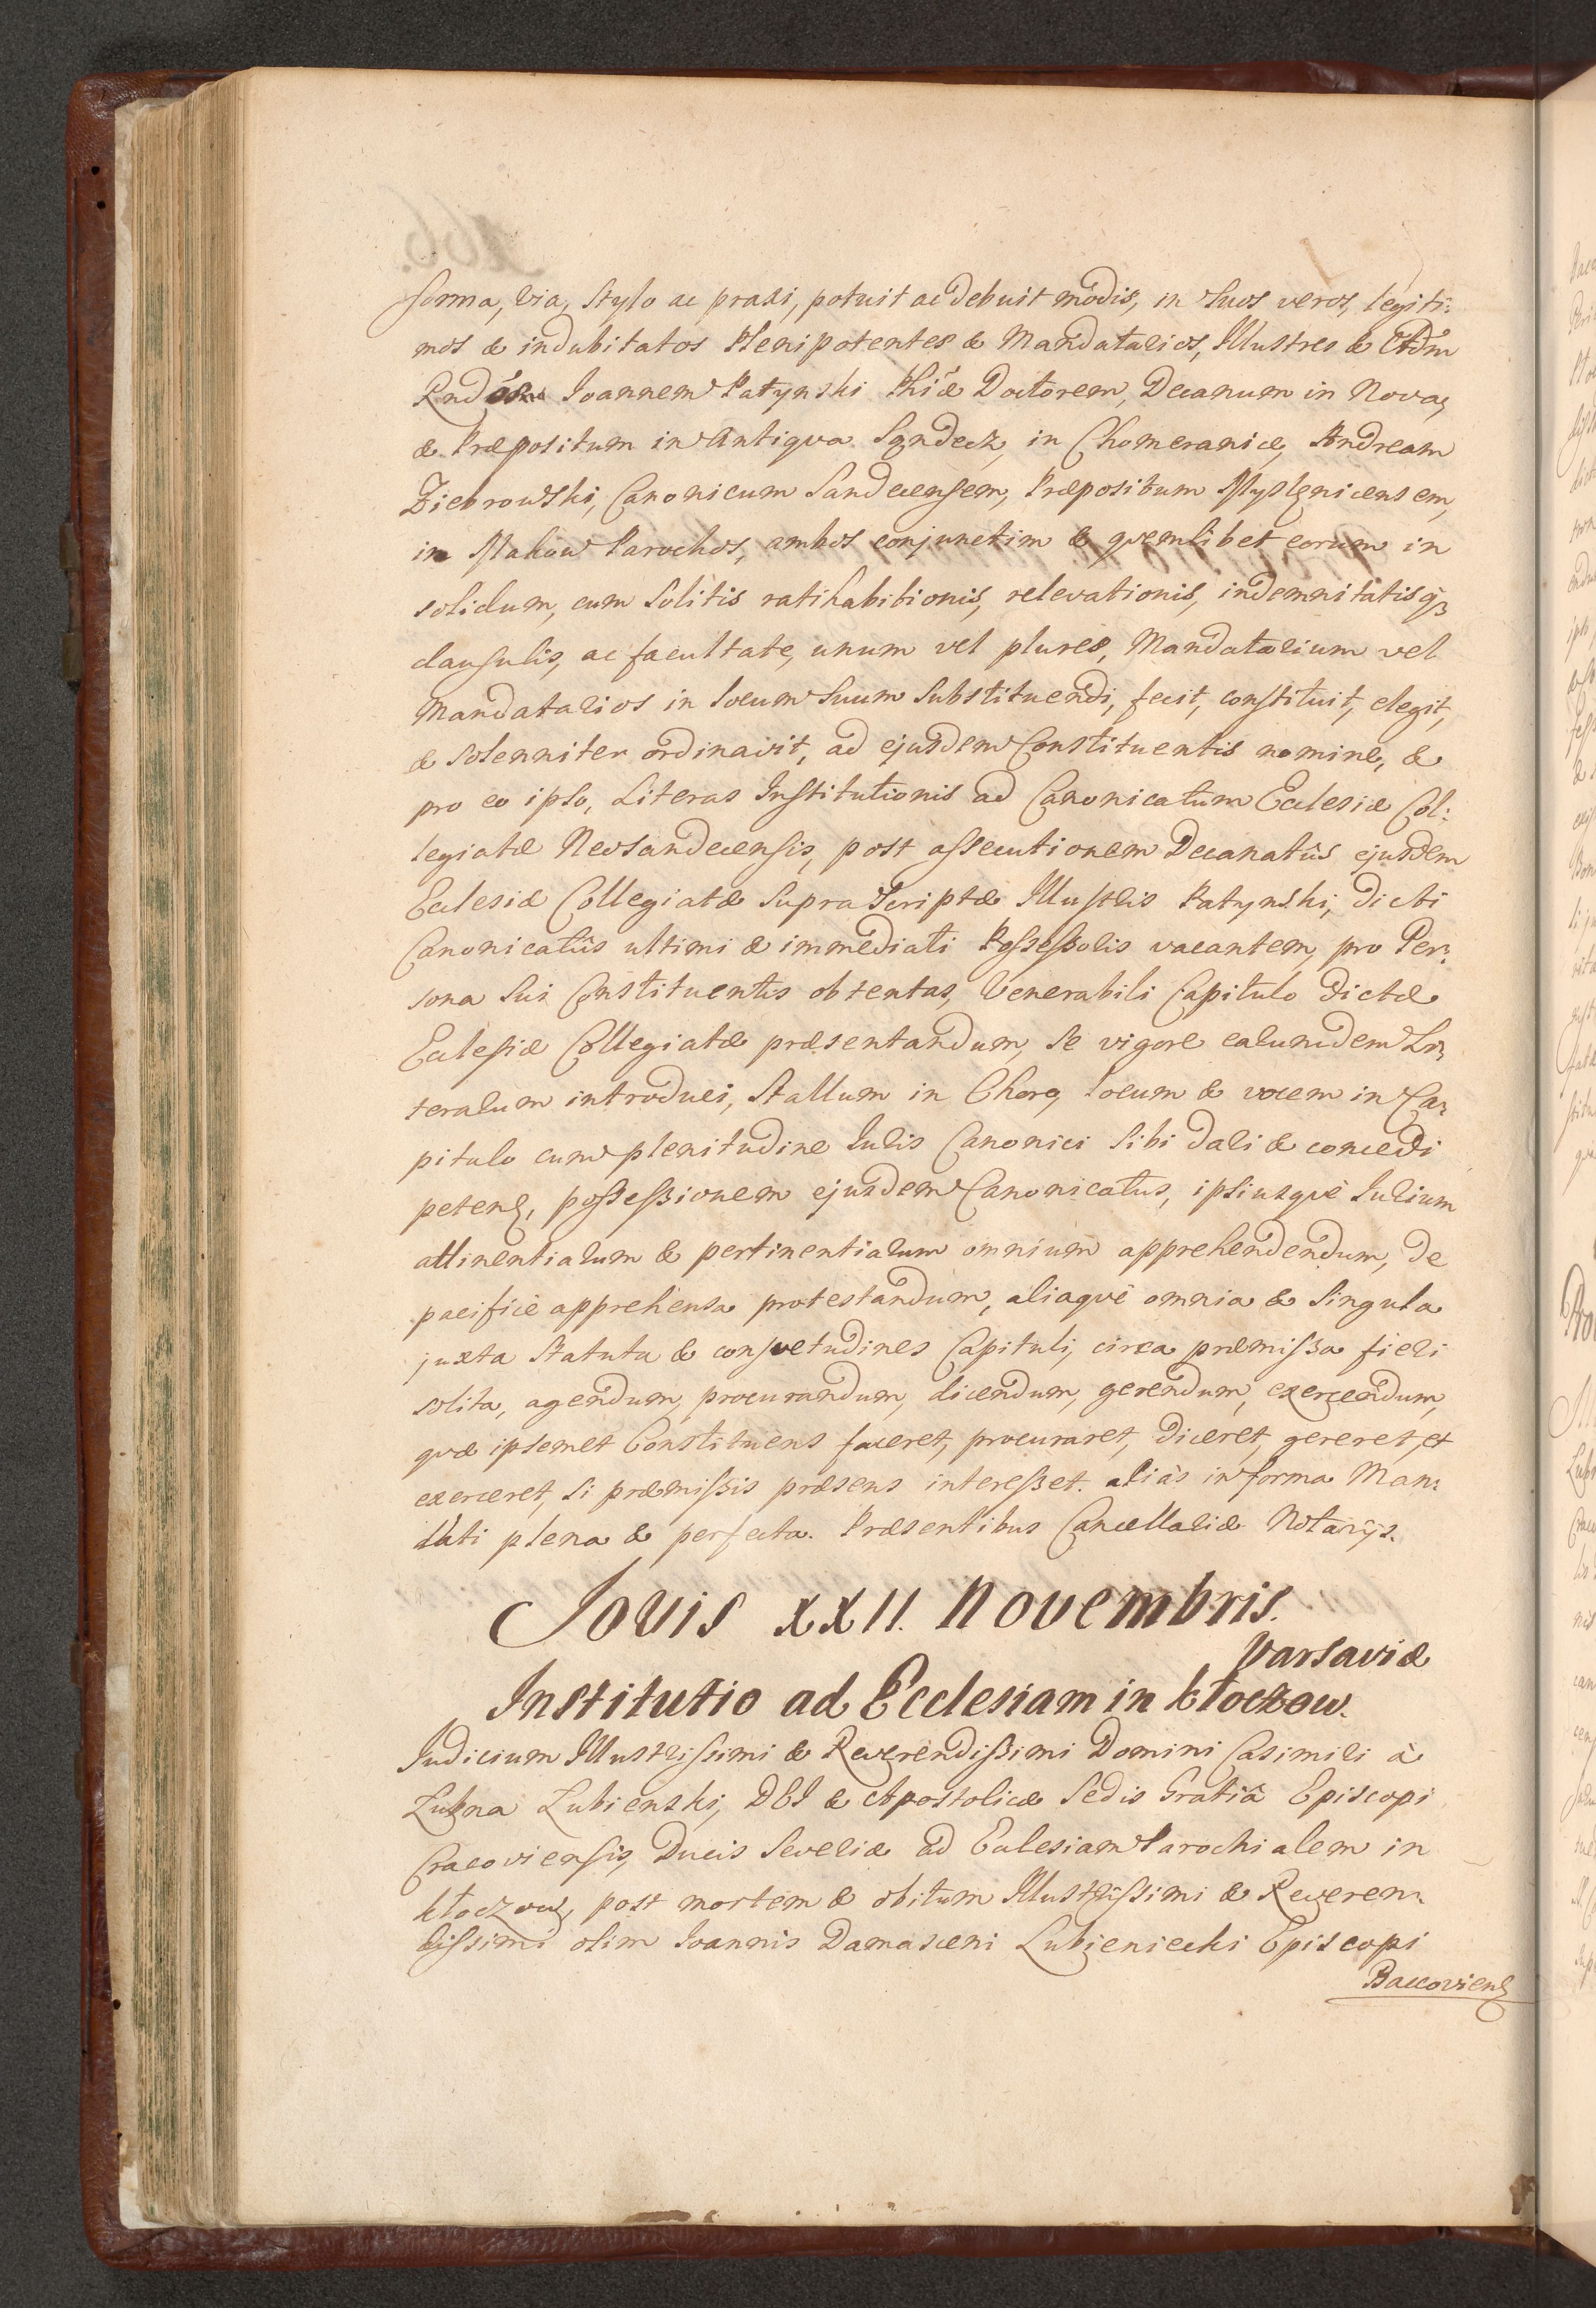 forma, via, stylo ac praxi, potuit ac debuit modis, in suos veros, legiti:
mos & indubitatos Plenipotentes & Mandatarios, Illustres & Adm
Rndos Joannem Patynski Phiæ Doctorem, Decanum in Nova,
& Præpositum in Antiqva Sandecz, in Chomeranice, Andream
Ziebrowski, Canonicum Sandecensem, Præpositum Myslenicensem,
in Makow Parochos, ambos conjunctim & qvemlibet eorum in
solidum, cum solitis ratihabitionis, relevationis, indemnitatisq3
clausulis, ac facultate, unum vel plures, Mandatarium vel
Mandatarios in locum suum substituendi, fecit, constituit, elegit,
& solenniter ordinavit, ad ejusdem Constituentis nomine, &
pro eo ipso, Literas Institutionis ad Canonicatum Ecclesiæ Col:
legiatæ Neosandecensis, post assecutionem Decanatûs ejusdem
Ecclesiæ Collegiatæ supra scriptæ Illustris Patynski, dicti
Canonicatûs ultimi & immediati Possessoris vacantem, pro Per:
sona sui Constituentis obtentas, Venerabili Capitulo dictæ
Ecclesiæ Collegiatæ præsentandum, se vigore earumdem Li:
terarum introduci, stallum in Choro, locum & vocem in Ca:
pitulo cum plenitudine Iuris Canonici sibi dari & concedi
peten, possessionem ejusdem Canonicatus, ipsiusqvè Iurium
attinentiarum & pertinentiarum omnium apprehendendum, de
pacificè apprehensa protestandum, aliaqvè omnia & singula
juxta statuta & consvetudines Capituli, circa præmissa fieri
solita, agendum, procurandum, dicendum, gerendum, exercendum,
qvæ ipsemet Constituens faceret, procuraret, diceret, gereret, et
exerceret, si præmissis præsens interesset. aliàs in forma Man:
dati plena & perfecta. Præsentibus Cancellariæ Notarijs.
Jovis XXII. Novembris.
Varsaviæ
Institutio ad Ecclesiam in Kłoczow.
Iudicium Illustrissimi & Reverendissimi Domini Casimiri à
Łubna Łubienski, DEI & Apostolicæ Sedis Gratiâ Episcopi
Cracoviensis, Ducis Severiæ ad Ecclesiam Parochialem in
Kłoczow, post mortem & obitum Illustrissimi & Reveren:
dissimi olim Joannis Damasceni Lubieniecki Episcopi
Baccovien